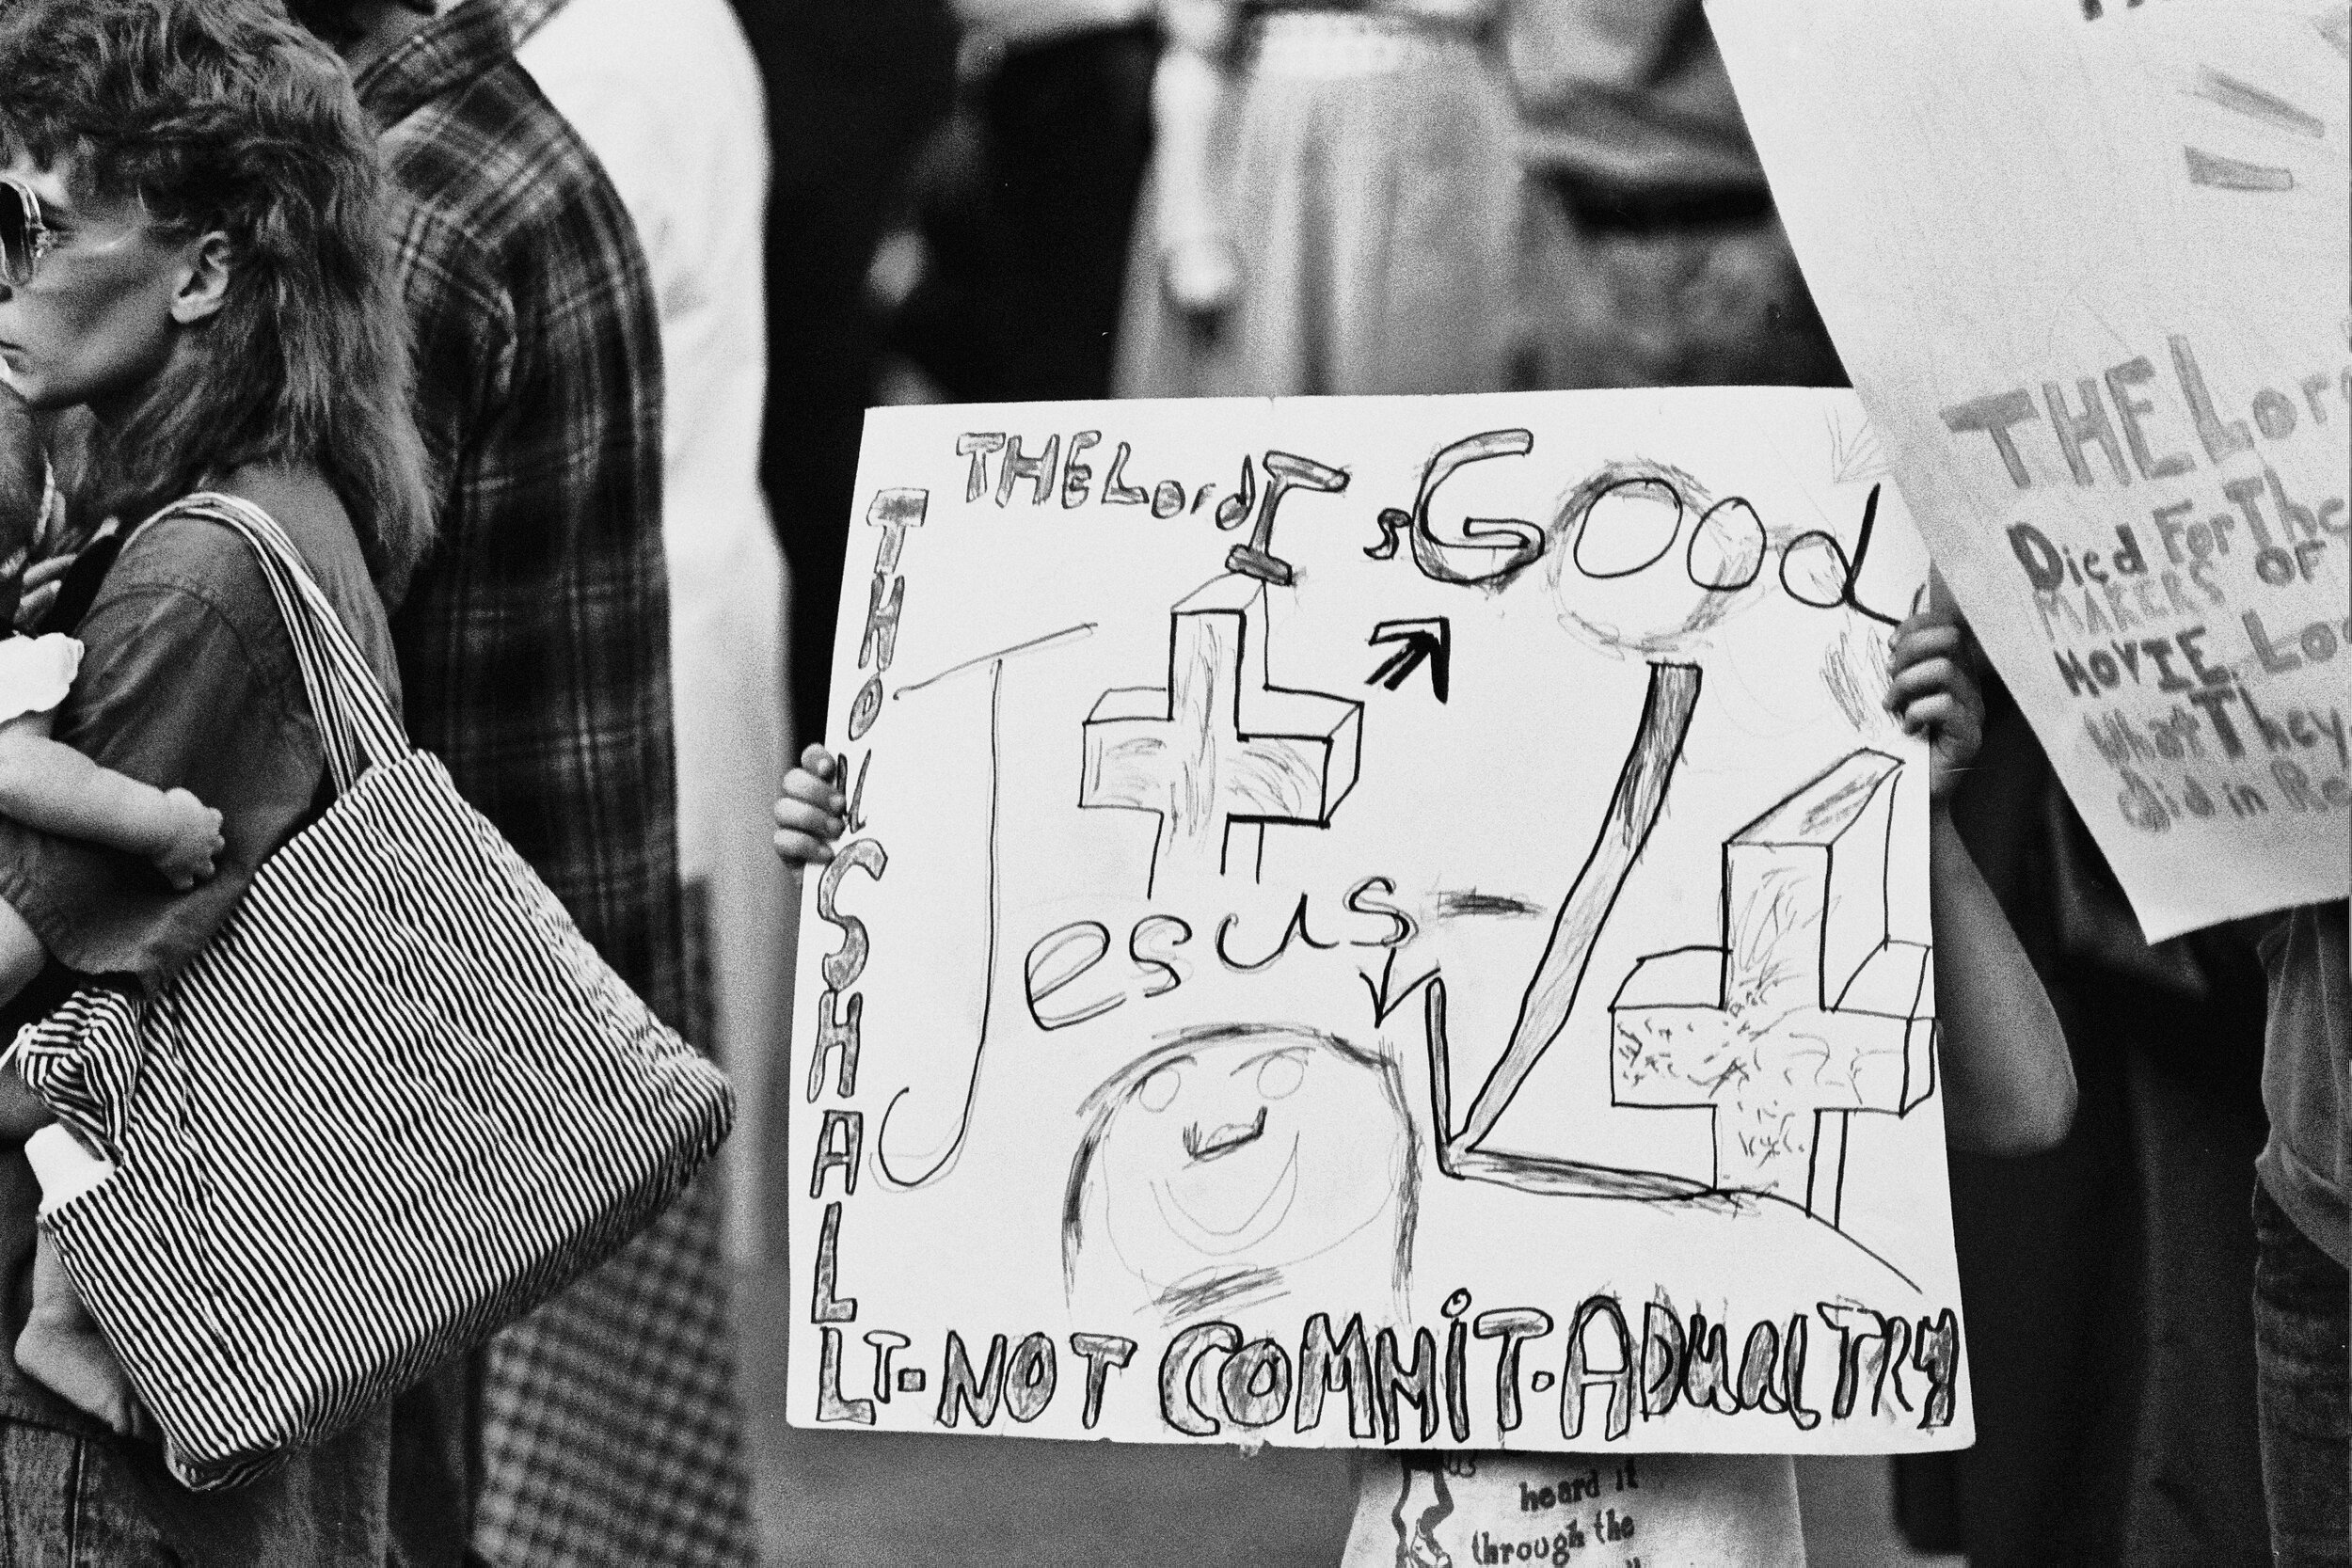 THE Lord Is Good
THOU SHALL
Jesus
LT. NOT COMMIT. ADUALTRY
THE Lor
Died For The
MAKERS OF
MOVIE. Lo
What They
did in Re
us
heard it
through the